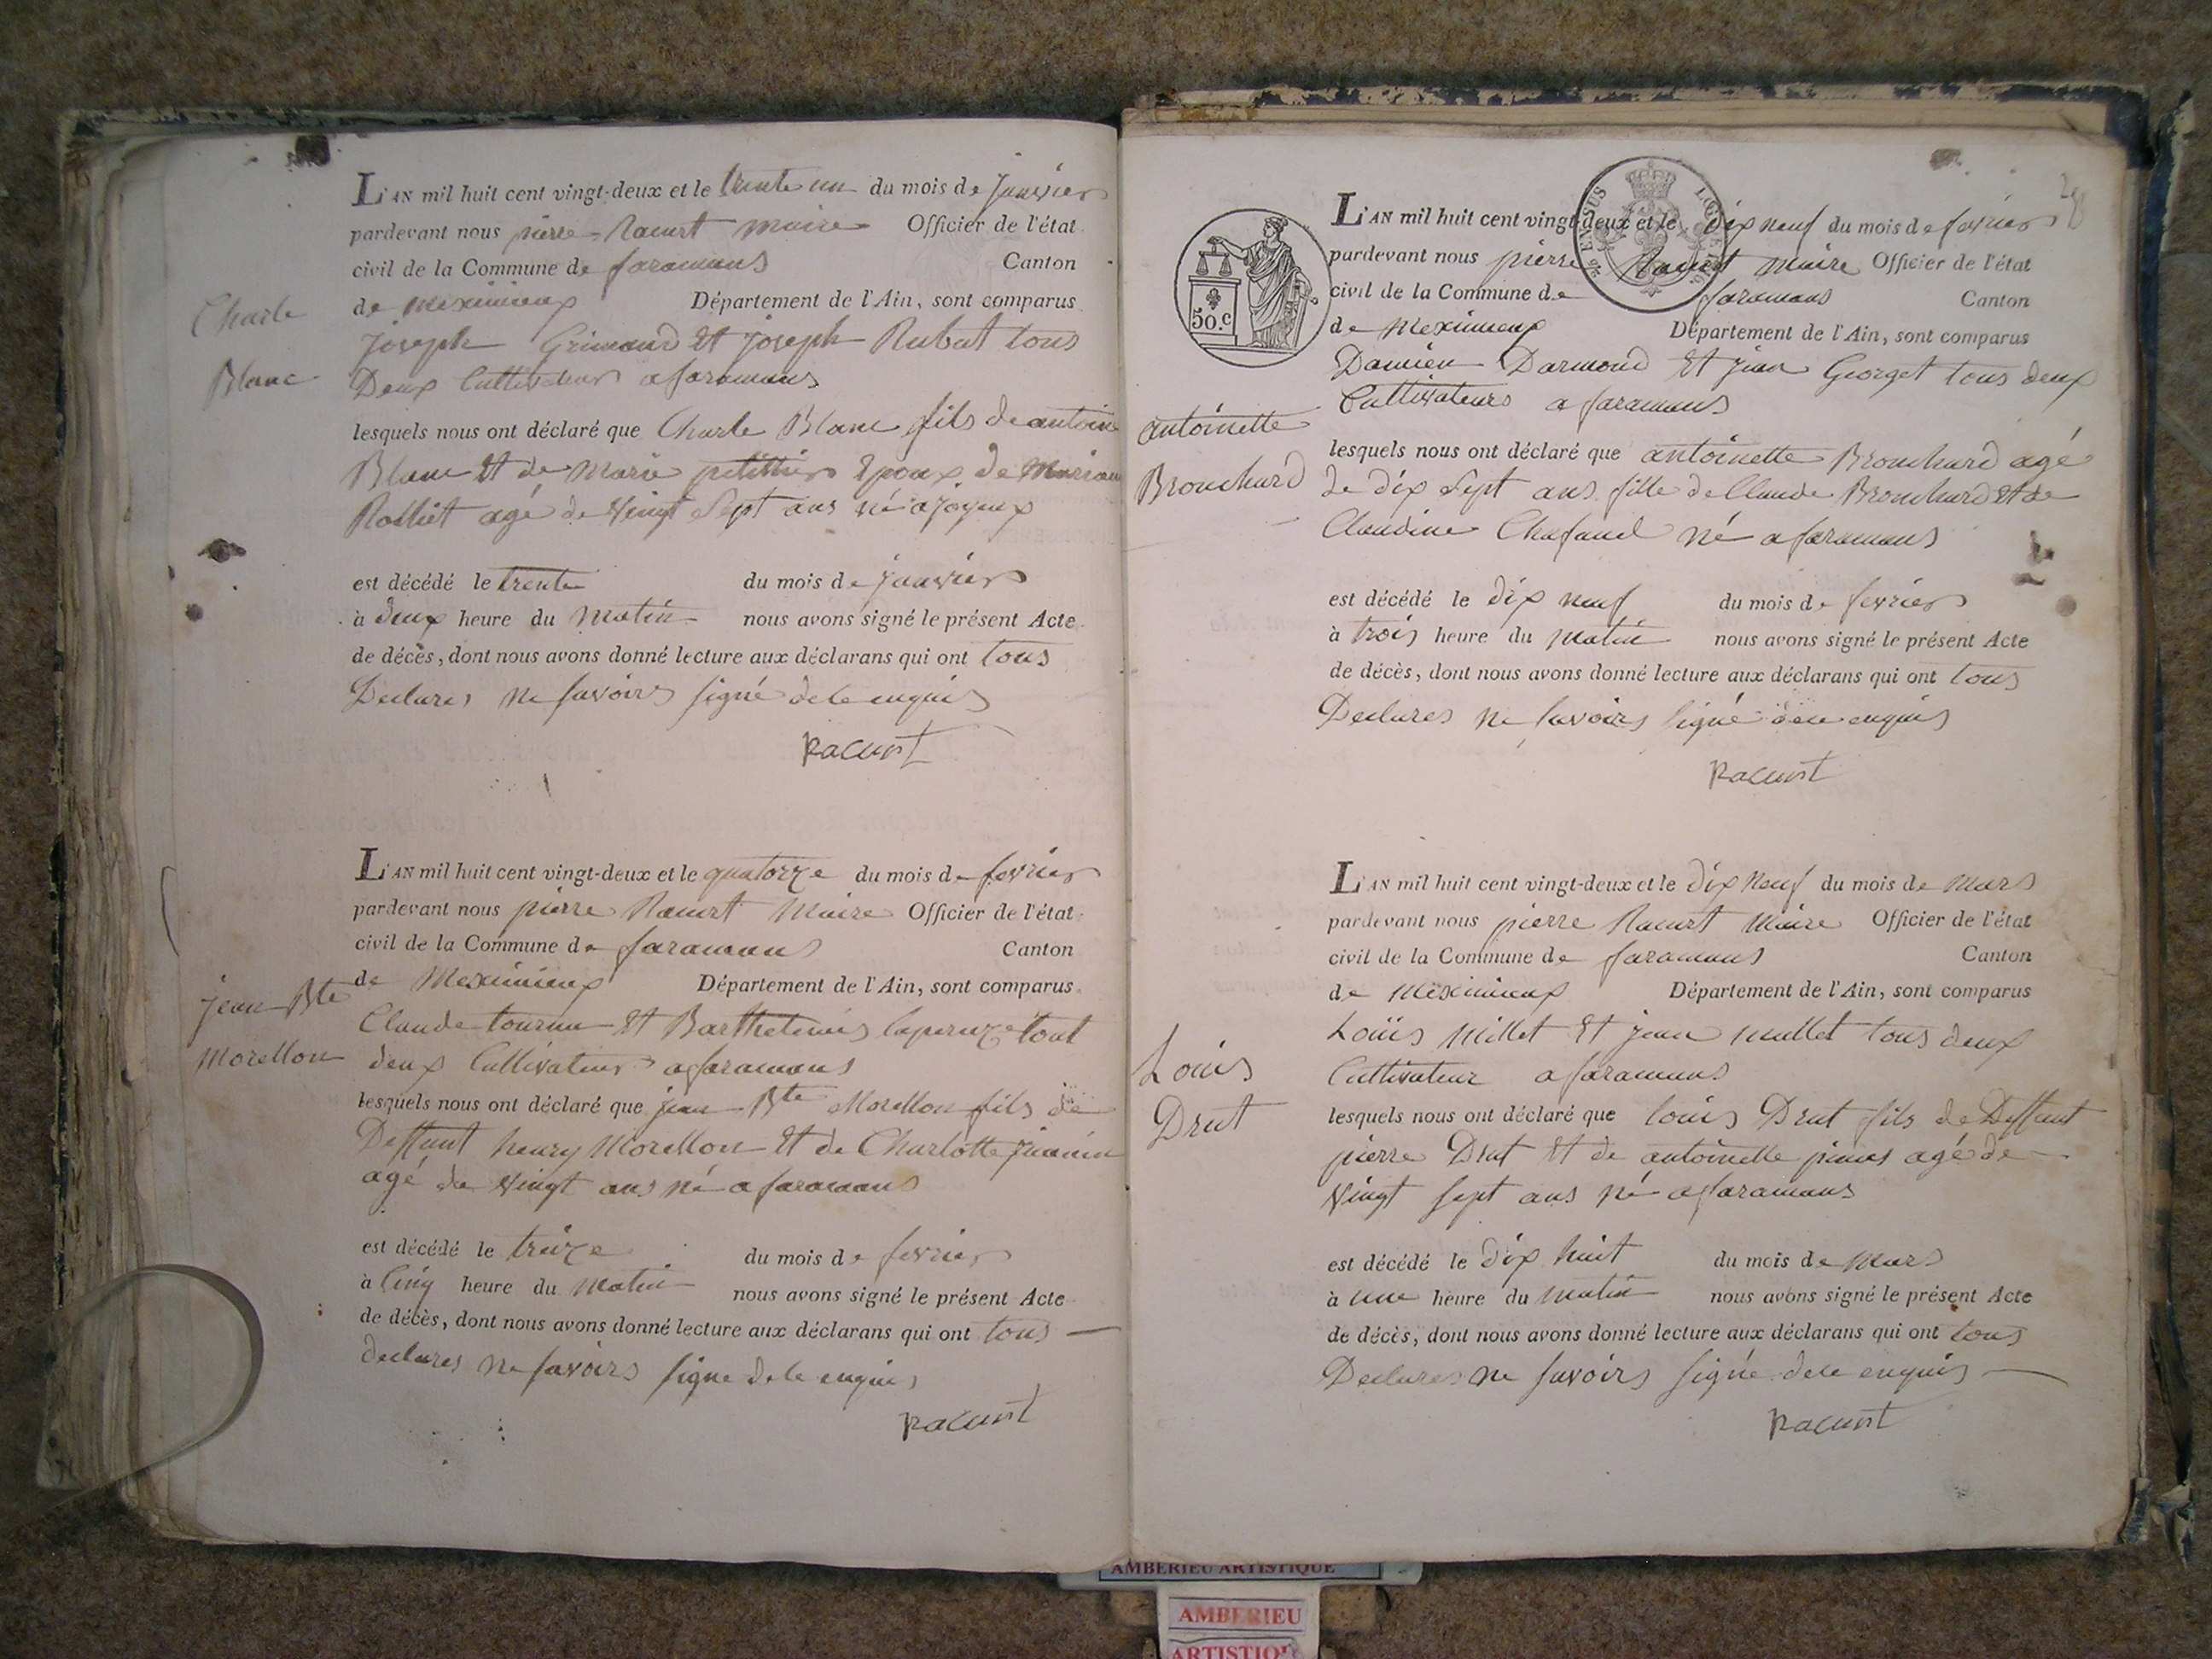 L'AN mil huit cent vingt-deux et le trente un du mois de janvier
pardevant nous pierre Racurt maire Officier de l'état
civil de la Commune de faramans Canton
de meximieux Département de l'Ain, sont comparus
Charle
Blanc
joseph Grimaud et joseph Rubat tous
Deux Cultivateurs a faramans
lesquels nous ont déclaré que Charle Blanc fils de antoine
Blanc et de Marie petitiers Epoux de
Rolliet agé de vingt Sept ans né a joyeux
est décédé le trente du mois de janvier
à deux heure du matin nous avons signé le présent Acte
de décès, dont nous avons donné lecture aux déclarans qui ont tous
Declares ne savoirs signé de le enquis
Racurt
L'AN mil huit cent vingt-deux et le quatorze du mois de fevrier
pardevant nous pierre Racurt Maire Officier de l'état
civil de la Commune de faramans Canton
de Meximieux Département de l'Ain, sont comparus
jean Bte
Morellon
Claude tournu et Barthelemis laperuze tout
deux Cultivateur a faramans
lesquels nous ont déclaré que jean Bte Morellon fils de
Deffunt henry Morellon et de Charlotte
agé de vingt ans né a faramans
est décédé le treize du mois de fevrier
à Cinq heure du Matin nous avons signé le présent Acte
de décès, dont nous avons donné lecture aux déclarans qui ont tous
declares ne savoirs signe de le enquis
Racurt
28
50.c
L'AN mil huit cent vingt-deux et le dix neuf du mois de fevrier
pardevant nous pierre Racurt maire Officier de l'état
civil de la Commune de faramans Canton
de Meximieux Département de l'Ain, sont comparus
Damien Darmond et jean Georget tous deux
Cultivateurs a faramans
antoinette
Brouchard
lesquels nous ont déclaré que antoinette Brouchard agé
de dix Sept ans fille de Claude Brouchard et de
Claudine Chafaud né a faramans
est décédé le dix neuf du mois de fevrier
à trois heure du matin nous avons signé le présent Acte
de décès, dont nous avons donné lecture aux déclarans qui ont tous
Declares ne savoirs signé de le enquis
Racurt
L'AN mil huit cent vingt-deux et le dix neuf du mois de mars
pardevant nous pierre Racurt Maire Officier de l'état
civil de la Commune de faramans Canton
de Meximieux Département de l'Ain, sont comparus
Louis
Drut
Loüis Millet et jean mullet tous deux
Cultivateur a faramans
lesquels nous ont déclaré que louis Drut fils de Deffunt
pierre Drut et de antoinette agé de
vingt sept ans né a faramans
est décédé le dix huit du mois de mars
à une heure du matin nous avons signé le présent Acte
de décès, dont nous avons donné lecture aux déclarans qui ont tous
Declares ne savoirs signé de le enquis
Racurt
AMBERIEU ARTISTIQUE
AMBERIEU